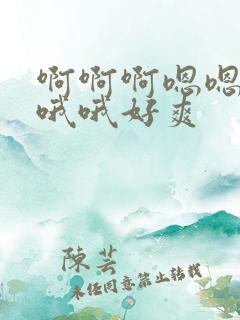 啊啊啊嗯嗯
哦哦好爽
陈芸
未经同意禁止转载